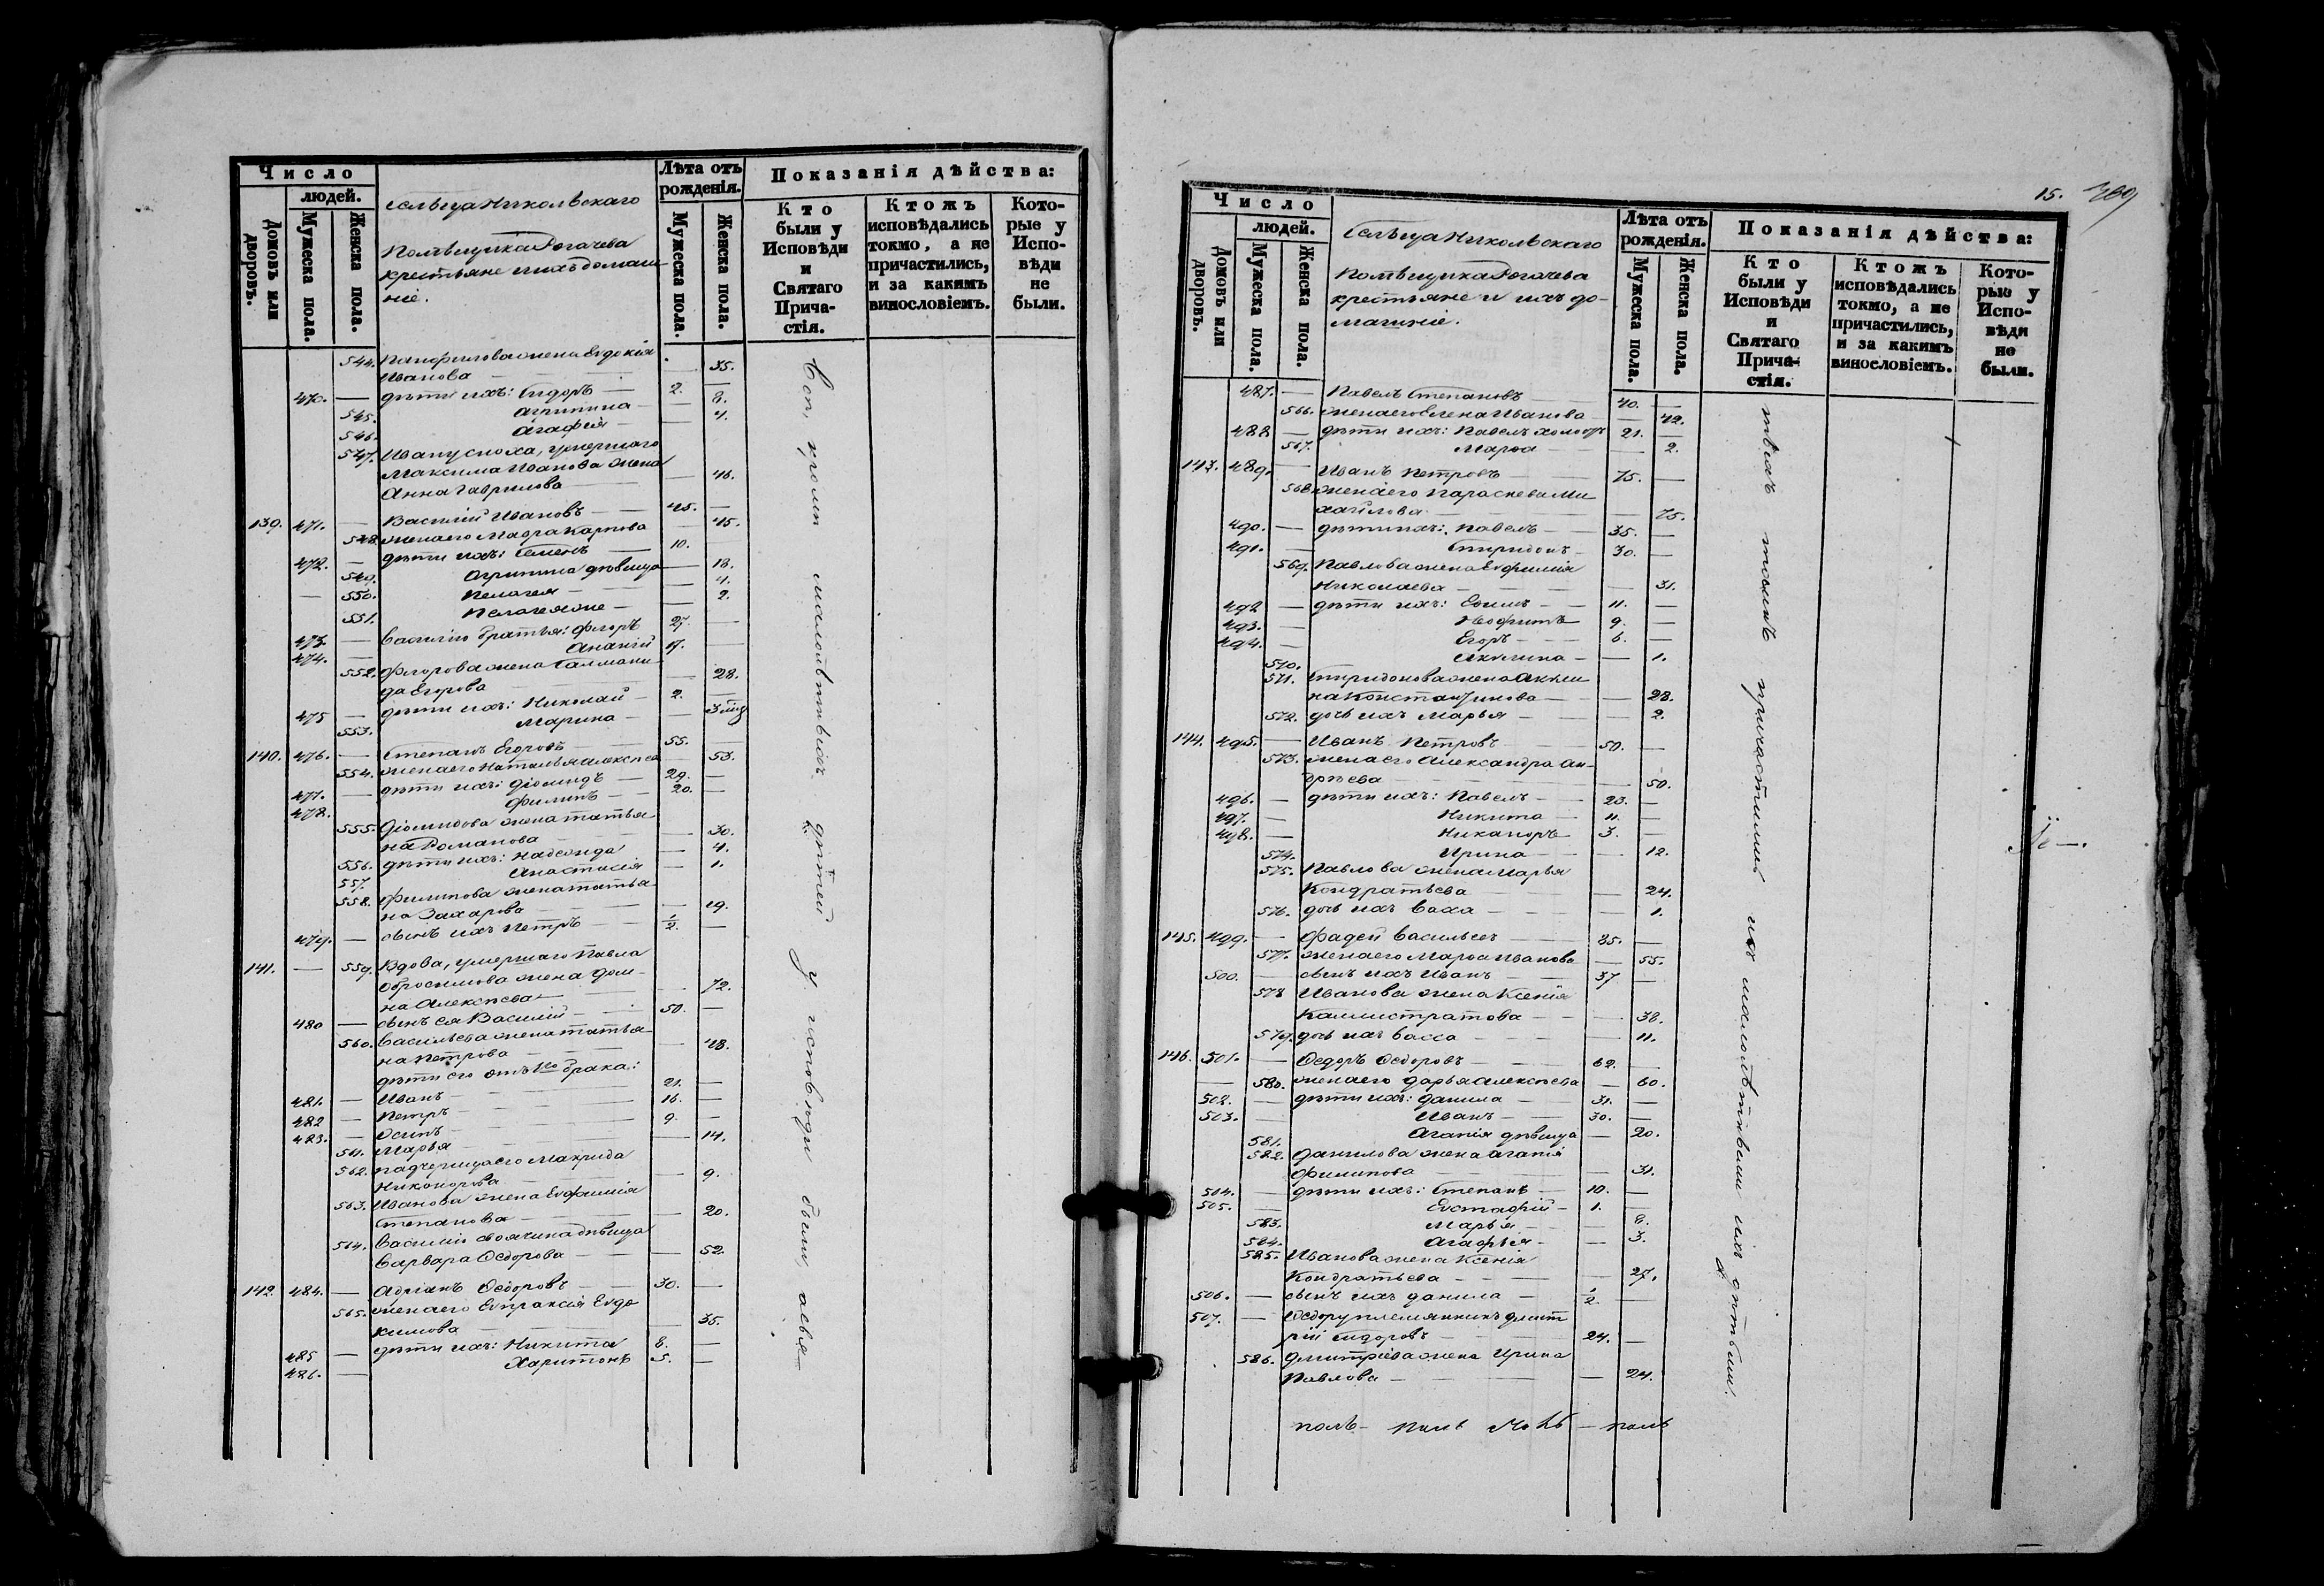 Число
людей.
Домовъ или дворовъ.
Мужеска пола.
Женска пола.
сельца Никольскаго
Помѣщика Рогачева
крестьяне и ихъ домаш-
ніе.
Лѣта отъ
рожденія.
Мужеска пола.
Женска пола.
Показанія дѣйства:
Кто
были у
Исповѣди
и
Святаго
Прича-
стія.
Ктожъ
исповѣдались
токмо, а не
причастились,
и за какимъ
винословіемъ.
Кото-
рые у
Испо-
вѣди
не
были.
544. Панфилова жена Евдокія
Иванова — 35.
470. — дѣти ихъ: Сидоръ — 2. —
545. Агрипина — 8.
546. Агафія — 4.
547. Ивану сноха, умершаго
Максима Иванова жена
Анна Гаврилова — 46.
139. 471. — Василій Ивановъ — 45. —
548. жена его Мавра Карпова — 45.
472. — дѣти ихъ: Семенъ — 10.
549. Агрипина дѣвица — 18.
— 550. Пелагея — 4.
551. Пелагея же — 2.
473. — Василію братья: Флоръ 27. —
474. — Ананій 17. —
552. Флорова жена Саломони-
да Егорова — 28.
475 — дѣти ихъ: Николай — 2. —
553. Марина — 3 мѣс
140. 476. — Степанъ Егоровъ — 55. —
554. жена его Наталья Алексѣева — 53.
477. — дѣти ихъ: Діомидъ — 29. —
478. Филипъ — 20. —
555. Діомидова жена Татья-
на Романова — 30.
556. дѣти ихъ: Надежда — 4.
557. Анастасія — 1.
558. Филипова жена Татья-
на Захарова — 19.
479. — сынъ ихъ Петръ — 1/2. —
141. — 559. Вдова, умершаго Павла
Абросимова жена Дом-
на Алексѣева — 72.
480 — сынъ ея Василій — 50. —
560. Васильева жена Татья-
на Петрова — 48.
дѣти его отъ 1го брака:
481. — Иванъ — 21. —
482 — Петръ — 16. —
483. — Осипъ — 9. —
561. Марья — 14.
562. падчерица его Макрида
Никонорова — 9.
563. Иванова жена Евфимія
Степанова — 20.
564. Василію своячина дѣвица
Варвара Ѳедорова — 52.
142. 484. — Адріанъ Ѳедоровъ — 30. —
565. жена его Евпраксія Евдо-
кимова — 35.
485 — дѣти ихъ: Никита 8. —
486. — Харитонъ 5. —
Вси, кромѣ малолѣтныхъ дѣтей у исповѣди были, а свя-
15. 769
Число
людей.
Домовъ или дворовъ.
Мужеска пола.
Женска пола.
Сельца Никольскаго
Помѣщика Рогачева
крестьяне и ихъ до-
машніе.
Лѣта отъ
рожденія.
Мужеска пола.
Женска пола.
Показанія дѣйства:
Кто
были у
Исповѣди
и
Святаго
Прича-
стія.
Ктожъ
исповѣдались
токмо, а не
причастились,
и за какимъ
винословіемъ.
Кото-
рые у
Испо-
вѣди
не
были.
487. — Павелъ Степановъ — 40. —
566. жена его Елена Иванова — 42.
488 — дѣти ихъ: Павелъ холостъ 21. —
567. Марѳа — 2.
143. 489. — Иванъ Петровъ — 75. —
568. жена его Параскева Ми-
хайлова — 75.
490. — дѣти ихъ: Павелъ — 35. —
491. — Спиридонъ — 30. —
569. Павлова жена Евфимія
Николаева — 31.
492 — дѣти ихъ: Ефимъ — 11. —
493. — Неофитъ 9. —
494. — Егоръ — 6. —
570. Акулина — 1.
571. Спиридонова жена Акили-
на Константинова — 28.
572. дочь ихъ Марья — 2.
144. 495. — Иванъ Петровъ — 50. —
573. жена его Александра Ан-
дрѣева — 50.
496. — дѣти ихъ: Павелъ — 23. —
497. — Никита — 11. —
498. — Никаноръ 3. —
574. Ирина — 12.
575. Павлова жена Марья
Кондратьева — 24.
576. дочь ихъ Васса — 1.
145. 499. — Фадей Васильевъ — 85. —
577. жена его Марѳа Иванова — 55.
500. — сынъ ихъ Иванъ — 37 —
578 Иванова жена Ксенія
Каллистратова — 38.
579. дочь ихъ Васса — 11.
146. 501. — Ѳедоръ Ѳедоровъ — 62. —
— 580. жена его Дарья Алексѣева — 60.
502. — дѣти ихъ: Данила — 31. —
503. — Иванъ — 30. —
581. Агапія дѣвица — 20.
582. Данилова жена Агапія
Филипова — 31.
504. — дѣти ихъ: Степанъ — 10. —
505. — Евстафій — 1. —
583. Марья — 8.
584. Агафья — 3.
585. Иванова жена Ксенія
Кондратьева — 27.
506. — сынъ ихъ Данила — 1/2. —
507. — Ѳедору племянникъ Дмит-
рій Сидоровъ — 24. —
586. Дмитріева жена Ирина
Павлова — 24.
тыхъ таинъ причастились и съ малолѣтными ихъ дѣтьми.